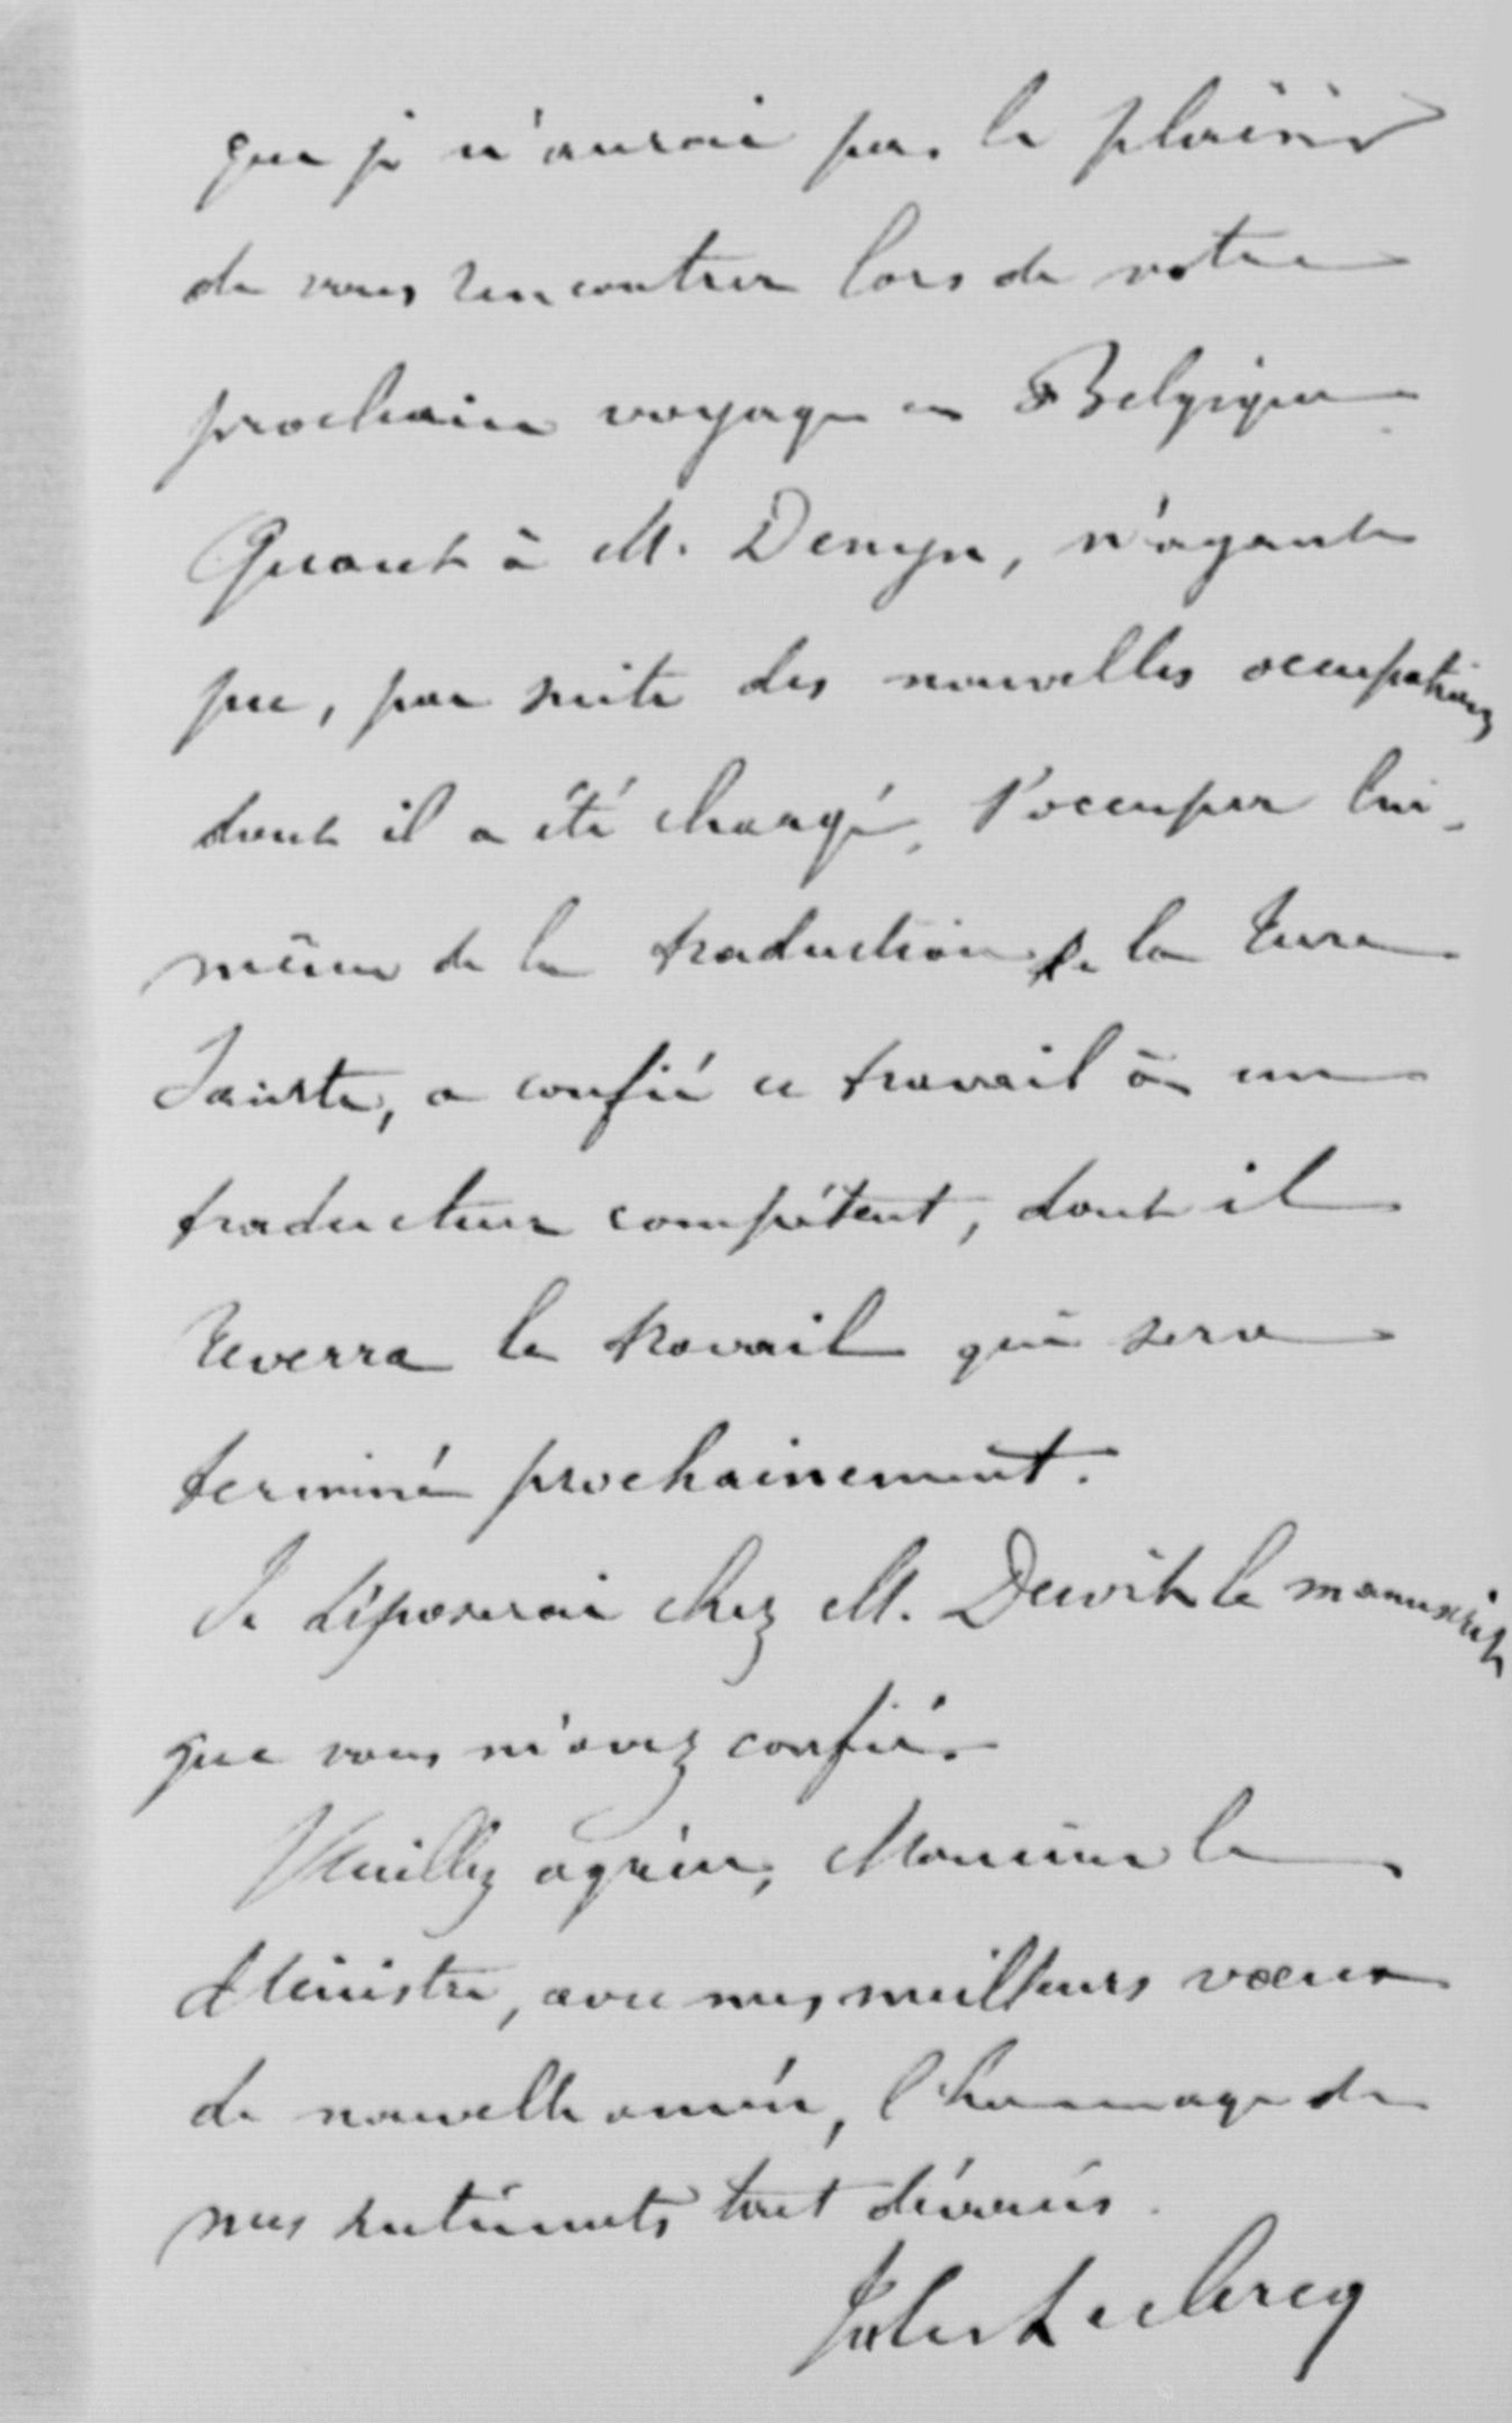 que je n'aurai pas le plaisir
de vous rencontrer lors de votre
prochain voyage en Belgique
Quant à M. Denyn, n'ayant
pu, par suite des nouvelles occupations
dont il a été chargé, s'occuper lui-
même de la traduction de la Terre
Sainte, a confié ce travail à un
traducteur compétent, dont il
reverra le travail qui sera
terminé prochainement.
Je déposerai chez M. Dewit le manuscrit
que vous m'avez confié.
Veuillez agréer, Monsieur le
Ministre, avec mes meilleurs vœux
de nouvelle année, l'hommage de
mes sentiments tout dévoués.
Jules Leclercq